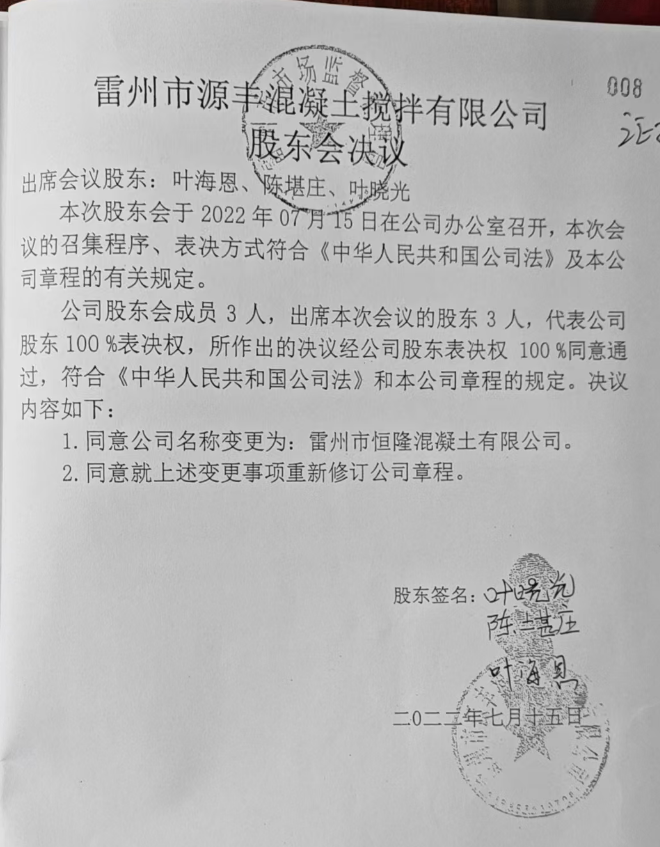 008
雷州市源丰混凝土搅拌有限公司
股东会决议
出席会议股东：叶海恩、陈堪庄、叶晓光
本次股东会于 2022 年 07 月 15 日在公司办公室召开，本次会
议的召集程序、表决方式符合《中华人民共和国公司法》及本公
司章程的有关规定。
公司股东会成员 3 人，出席本次会议的股东 3 人，代表公司
股东 100 %表决权，所作出的决议经公司股东表决权 100 %同意通
过，符合《中华人民共和国公司法》和本公司章程的规定。决议
内容如下：
1. 同意公司名称变更为：雷州市恒隆混凝土有限公司。
2. 同意就上述变更事项重新修订公司章程。
股东签名：叶晓光
陈堪庄
叶海恩
二〇二二年七月十五日
市场监督
限公司